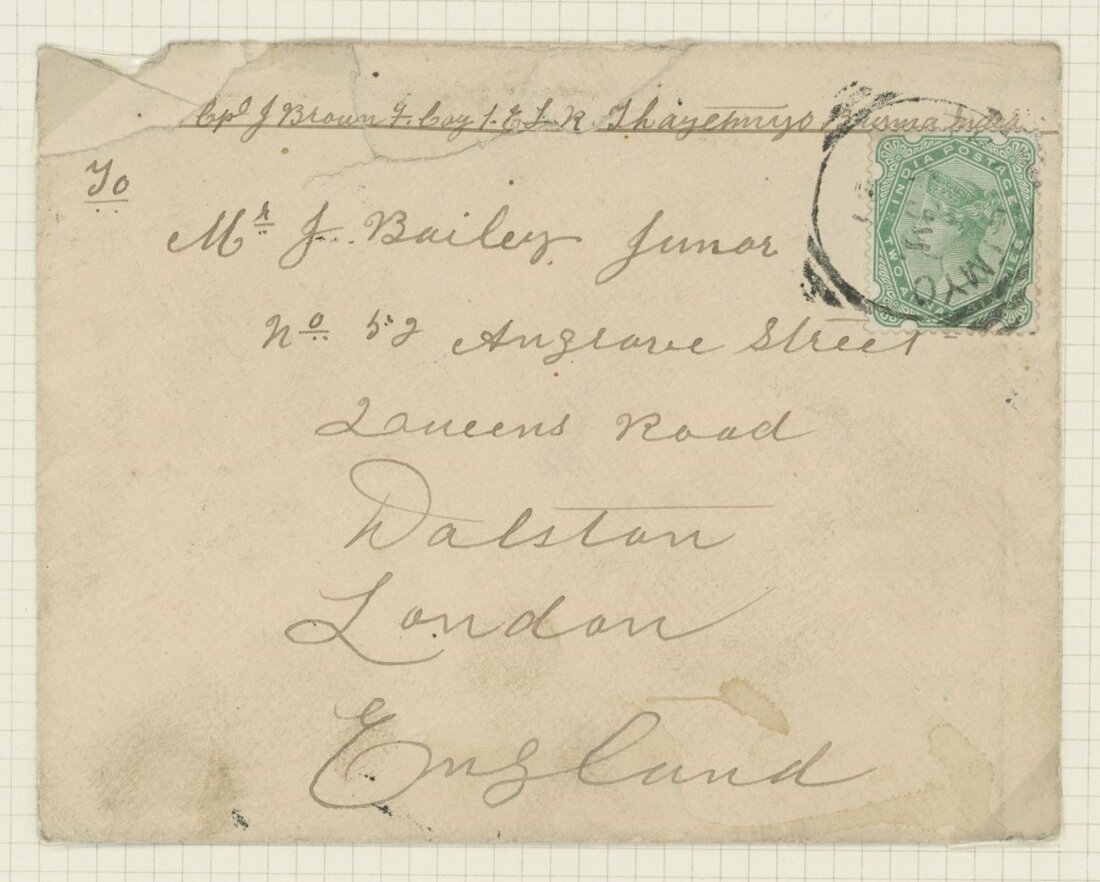 Cpl J Brown F. Coy 1. E L R Thayetmyo Burma India
To
Mr J. Bailey Junor
No 52 Angrave Street
Queens Road
Dalston
London
England
INDIA POSTAGE
TWO ANNAS SIX PIES